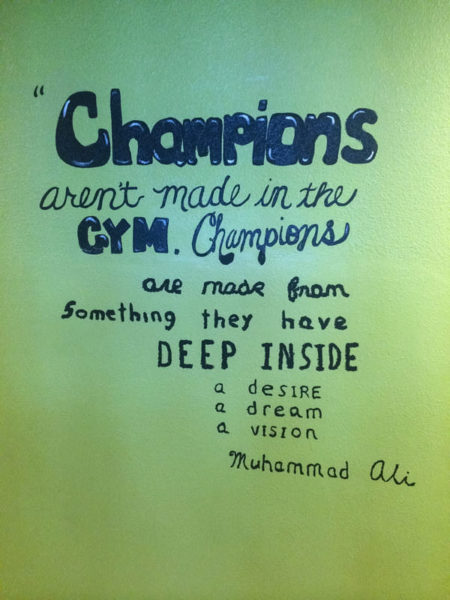 "Champions
aren't made in the
GYM. Champions
are made from
Something they have
DEEP INSIDE
a deSIRE
a dream
a VISIOn
Muhammad Ali